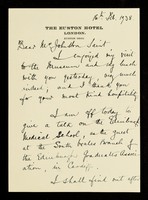 THE EUSTON HOTEL
LONDON.
16th Feb. 1938
Dear Mr Johnston Saint
I enjoyed my visit
to the Museum and my lunch
with you yesterday very much
indeed, and I thank you
for your most kind hospitality
I am off today to
give a talk on the Edinburgh
Medical School, as the guest
at the South Wales branch of
the Edinburgh Graduates Association,
in Cardiff.
I shall find out after